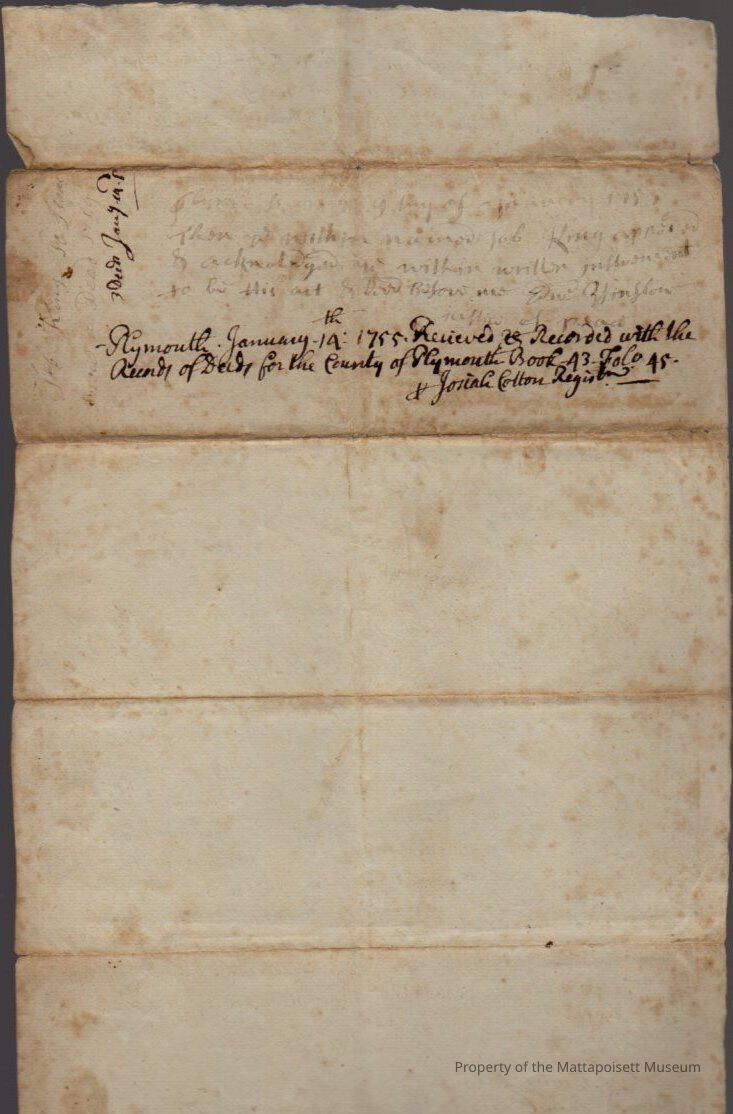 9 day of January 175
then within named Job King appeared
& acknowledged ye within written instrument
to be his act & deed Before me Edw Winslow
Justice of peace
th
Plymouth. January. 14: 1755. Recieved & Recorded with the
Records of Deeds for the County of Plymouth Book. 43. Folo 45.
Josiah Cotton Registr
Job King to
Deed
Deed Jany 14.
Property of the Mattapoisett Museum